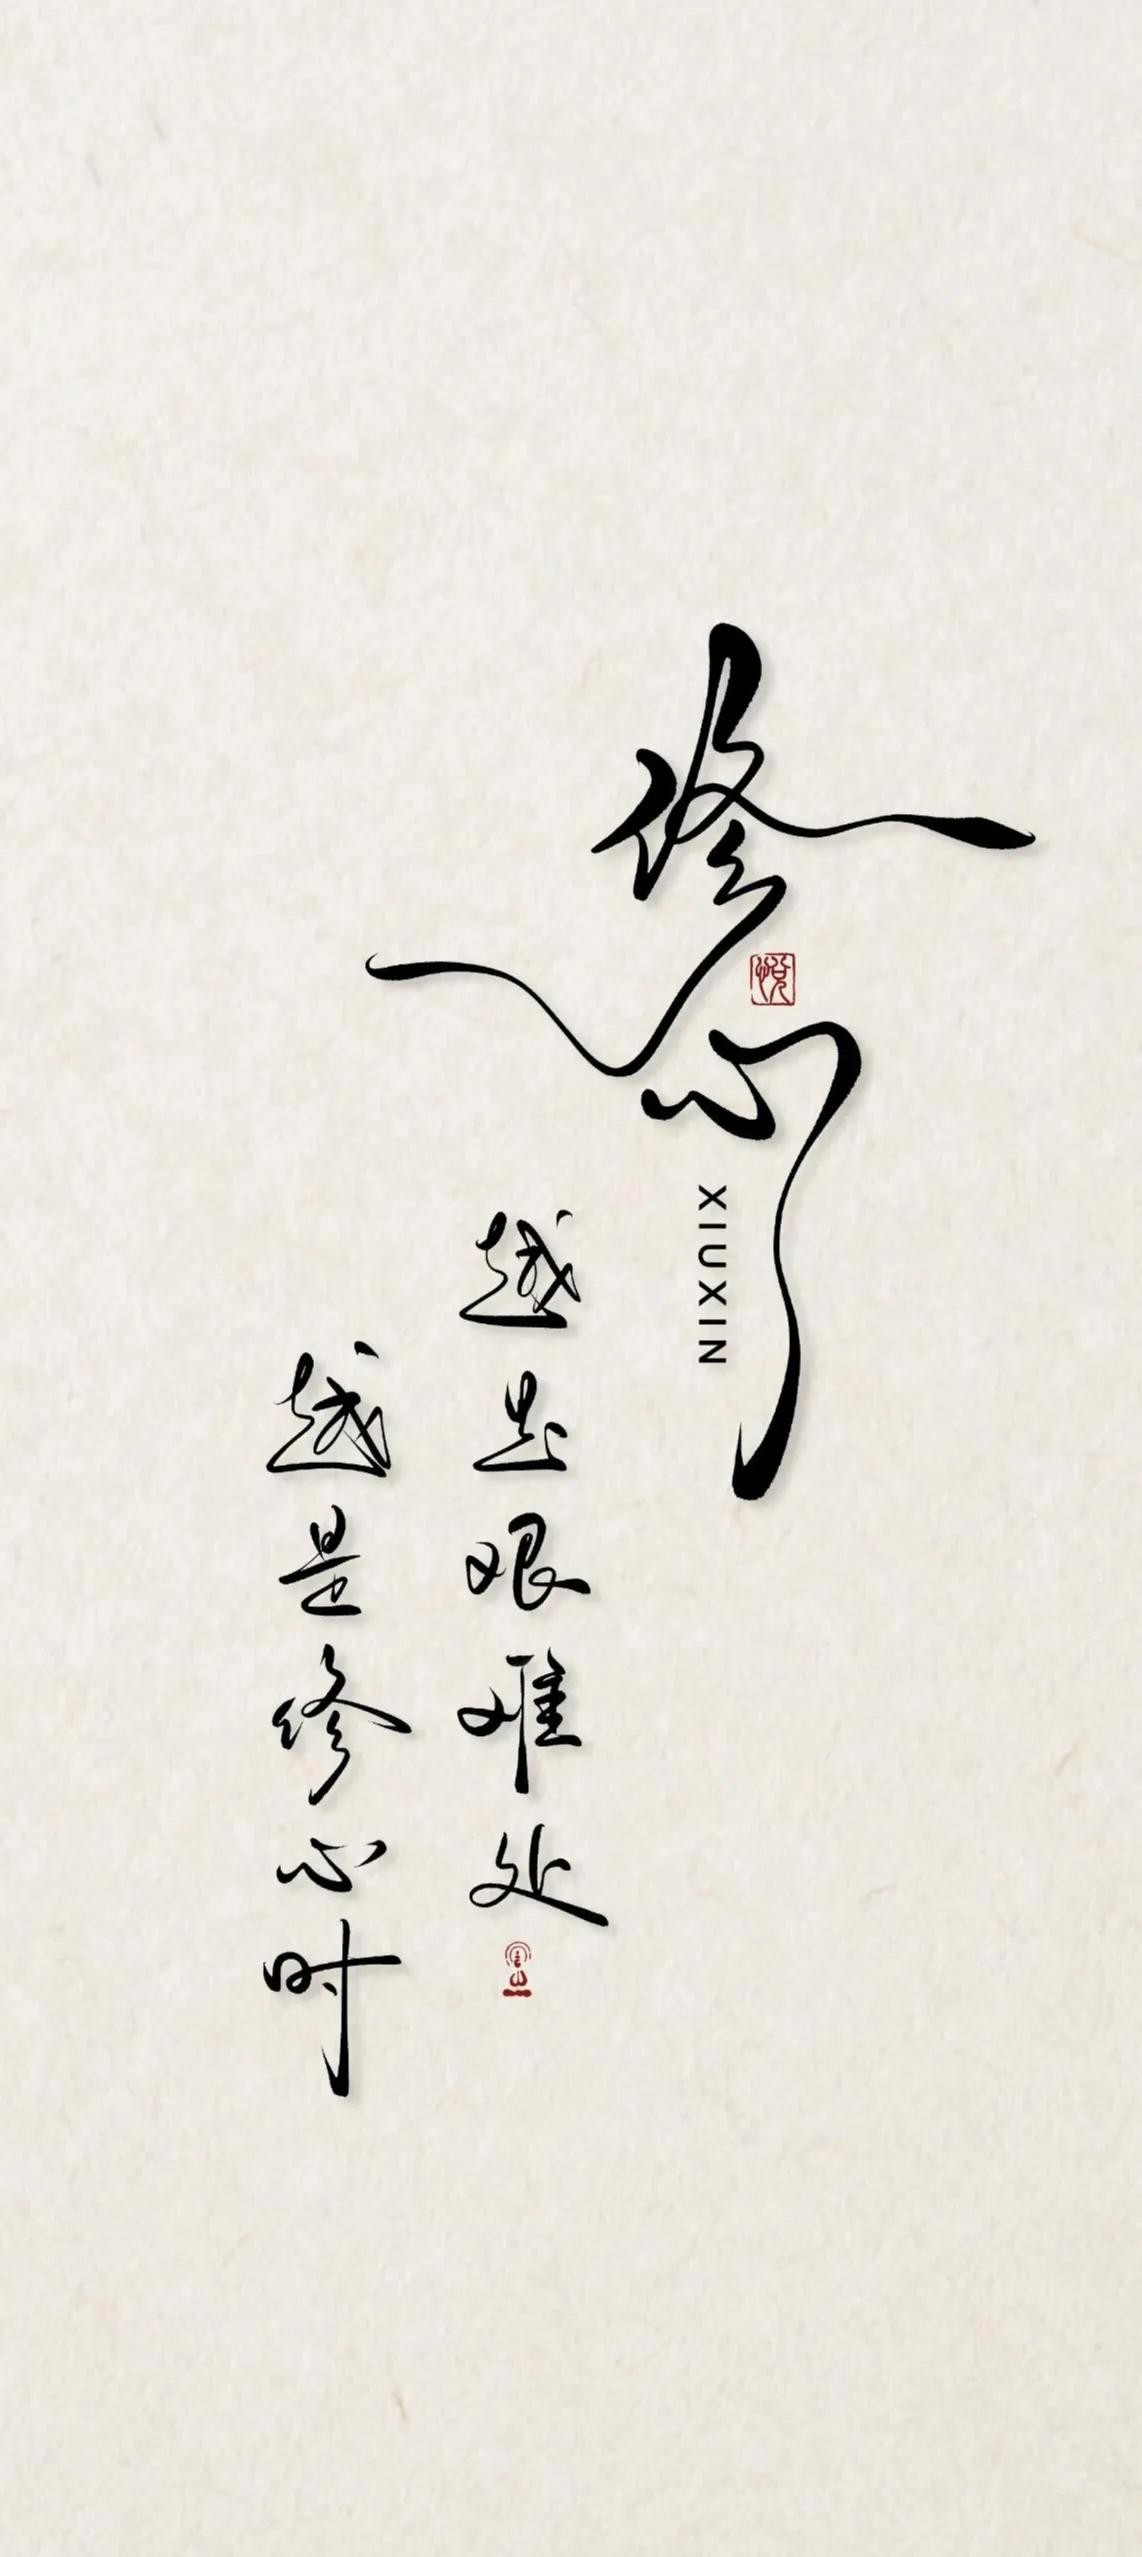 修心
悦
XIUXIN
越是艰难处
越是修心时